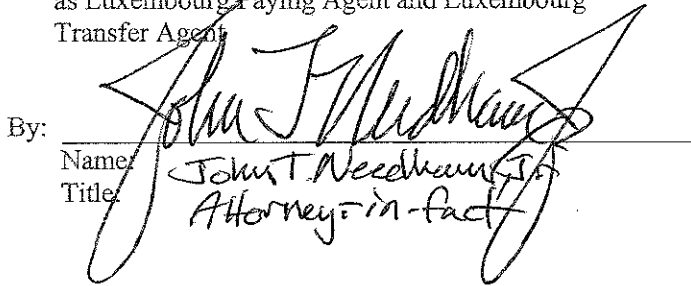 as Luxembourg Paying Agent and Luxembourg
Transfer Agent
John T Needham Jr
By:
Name: John T. Needham, Jr.
Title: Attorney-in-fact